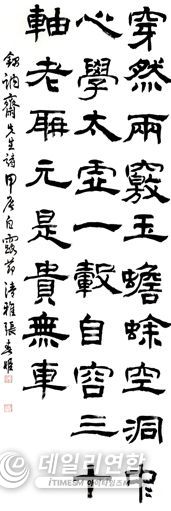 穿然兩竅玉蟾蜍空洞中
心學太虛一轂自容三十
軸老聃元是貴無車
錄訥齋先生詩甲辰白露節清雅張春姬
데일리연합
iTIMESM 아이타임즈M